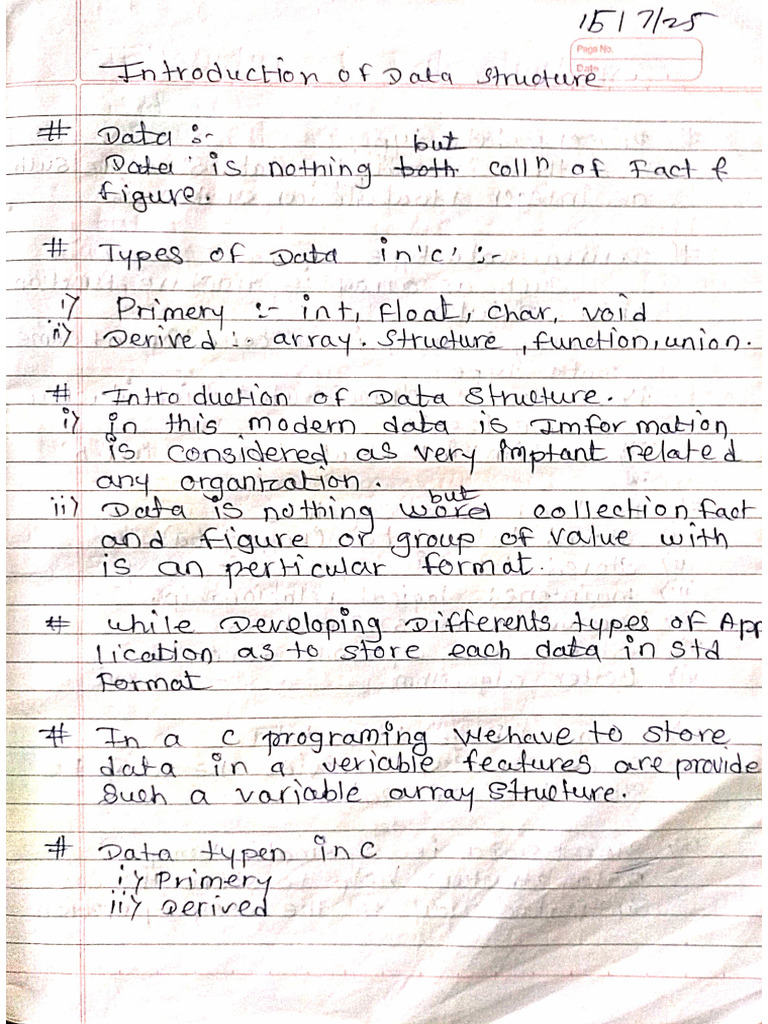 15/7/25
Page No.
Date
Introduction of Data Structure
# Data :-
but
Data is nothing both collⁿ of Fact &
figure.
# Types of Data in 'c' :-
i) Primery :- int, float, char, void
ii) Derived :- array. structure, function, union.
# Introduction of Data Structure.
i) in this modern data is Imformation
is considered as very imptant related
any organization.
but
ii) Data is nothing word collection fact
and figure or group of value with
is an perticular format.
# while Developing Differents types of App
lication as to store each data in std
Format
# In a c programing we have to store
data in a veriable features are provide
such a variable array structure.
# Data typen in C
i) Primery
ii) Derived